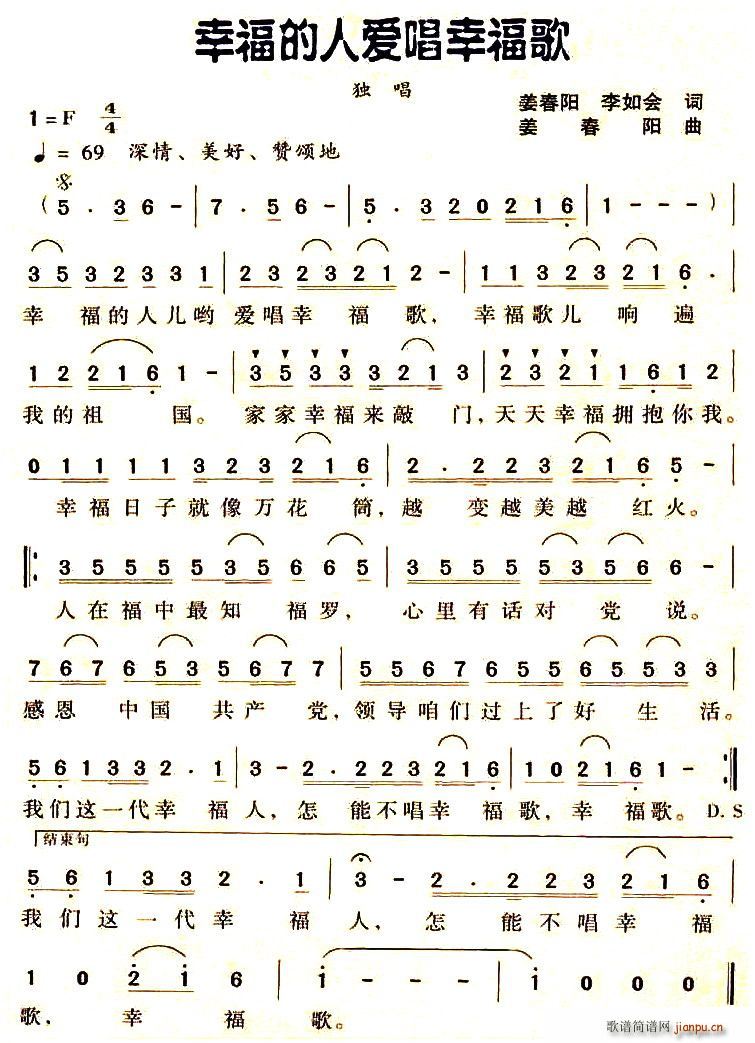 幸福的人爱唱幸福歌
独 唱
1=F 4/4
姜春阳 李如会 词
姜 春 阳 曲
♩= 69 深情、美好、赞颂地
( 5 . 3 6 - | 7 . 5 6 - | 5 . 3 2 0 2 1 6 | 1 - - - ) |
3 5 3 2 3 2 3 3 1 | 2 3 2 3 2 1 2 - | 1 1 3 2 3 2 1 6 .
幸 福的人儿哟 爱唱幸 福 歌, 幸福歌儿 响 遍
1 2 2 1 6 1 - | 3 5 3 3 3 2 1 3 | 2 3 2 1 1 6 1 2 |
我的祖 国。 家家幸福来敲 门,天天幸福拥抱你我。
0 1 1 1 1 3 2 3 2 1 6 | 2 . 2 2 3 2 1 6 5 - |
幸福日子就像万花 筒,越 变越美越 红火。
3 5 5 5 5 3 5 6 6 5 | 3 5 5 5 5 3 5 6 6 - |
人在福中最知 福罗, 心里有话对 党 说。
7 6 7 6 5 3 5 6 7 | 5 5 6 7 6 5 5 6 5 5 3 3 |
感恩 中国 共产 党,领导咱们过上了好 生 活。
5 6 1 3 3 2 . 1 | 3 - 2 . 2 2 3 2 1 6 | 1 0 2 1 6 1 - :|
我们这一代幸 福人,怎 能不唱幸 福歌,幸 福歌。D.S
结束句
5 6 1 3 3 2 . 1 | 3 - 2 . 2 2 3 2 1 6 |
我们这一代幸 福 人, 怎 能不唱幸 福
1 0 2 1 6 | 1 - - - | 1 0 0 0 ‖
歌, 幸 福 歌。
歌谱简谱网
jianpu.cn